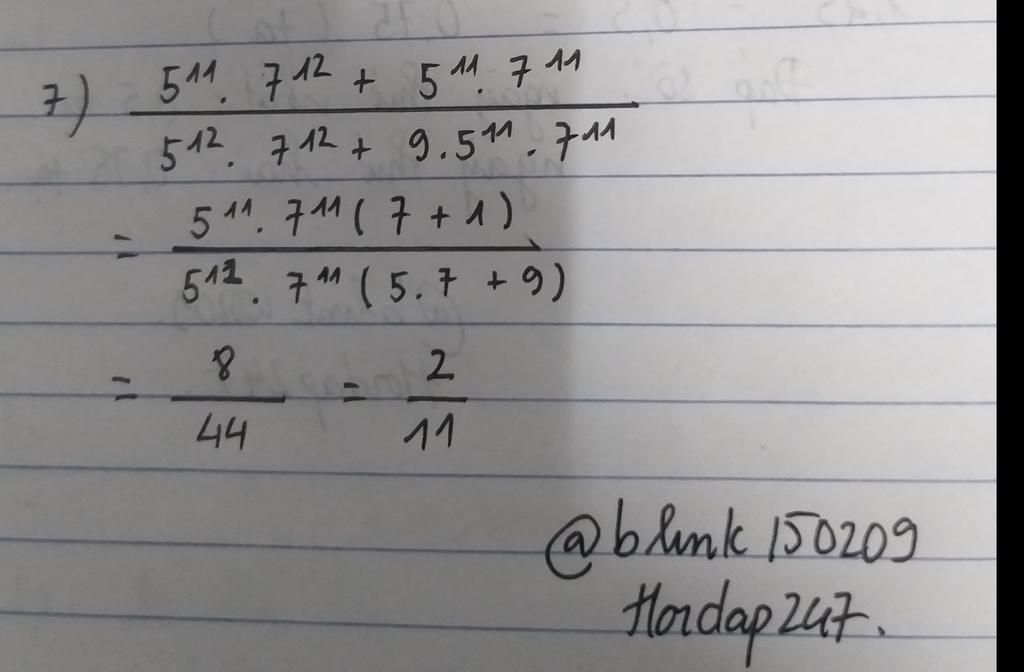 7) (5¹¹. 7¹² + 5¹¹. 7¹¹) / (5¹². 7¹² + 9.5¹¹. 7¹¹)
= (5¹¹. 7¹¹ ( 7 + 1 )) / (5¹¹. 7¹¹ ( 5. 7 + 9 ))
= 8 / 44 = 2 / 11
@blink 150209
Hoidap 247.